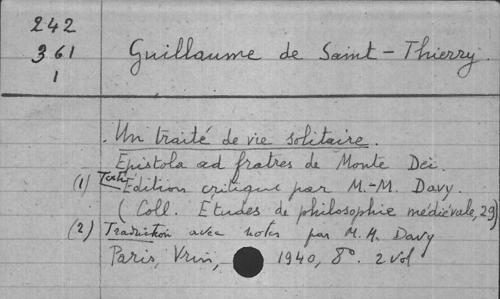 242
361
1
Guillaume de Saint-Thierry.
. Un traité de vie solitaire.
Epistola ad fratres de Monte Dei.
(1) Texte Edition critique par M.-M. Davy.
( Coll. Etudes de philosophie médiévale, 29)
(2) Traduction avec notes par M.M. Davy
Paris, Vrin, 1940, 8°. 2 vol